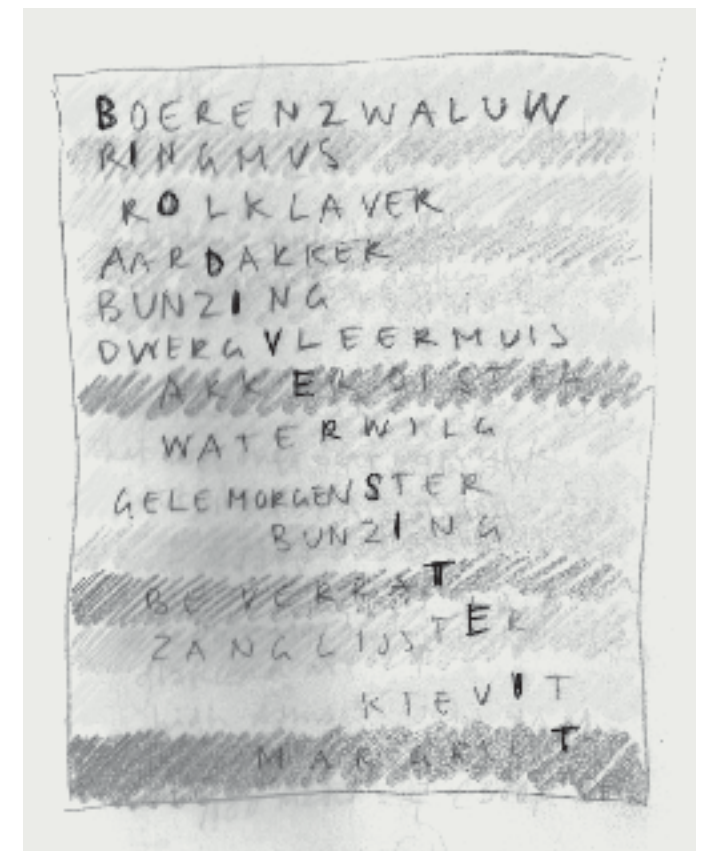 BOERENZWALUW
RINGMUS
ROLKLAVER
AARDAKKER
BUNZING
DWERGVLEERMUIS
AKKERDISTEL
WATERWILG
GELE MORGENSTER
BUNZING
BEVERRAT
ZANGLIJSTER
KIEVIT
MARGRIET